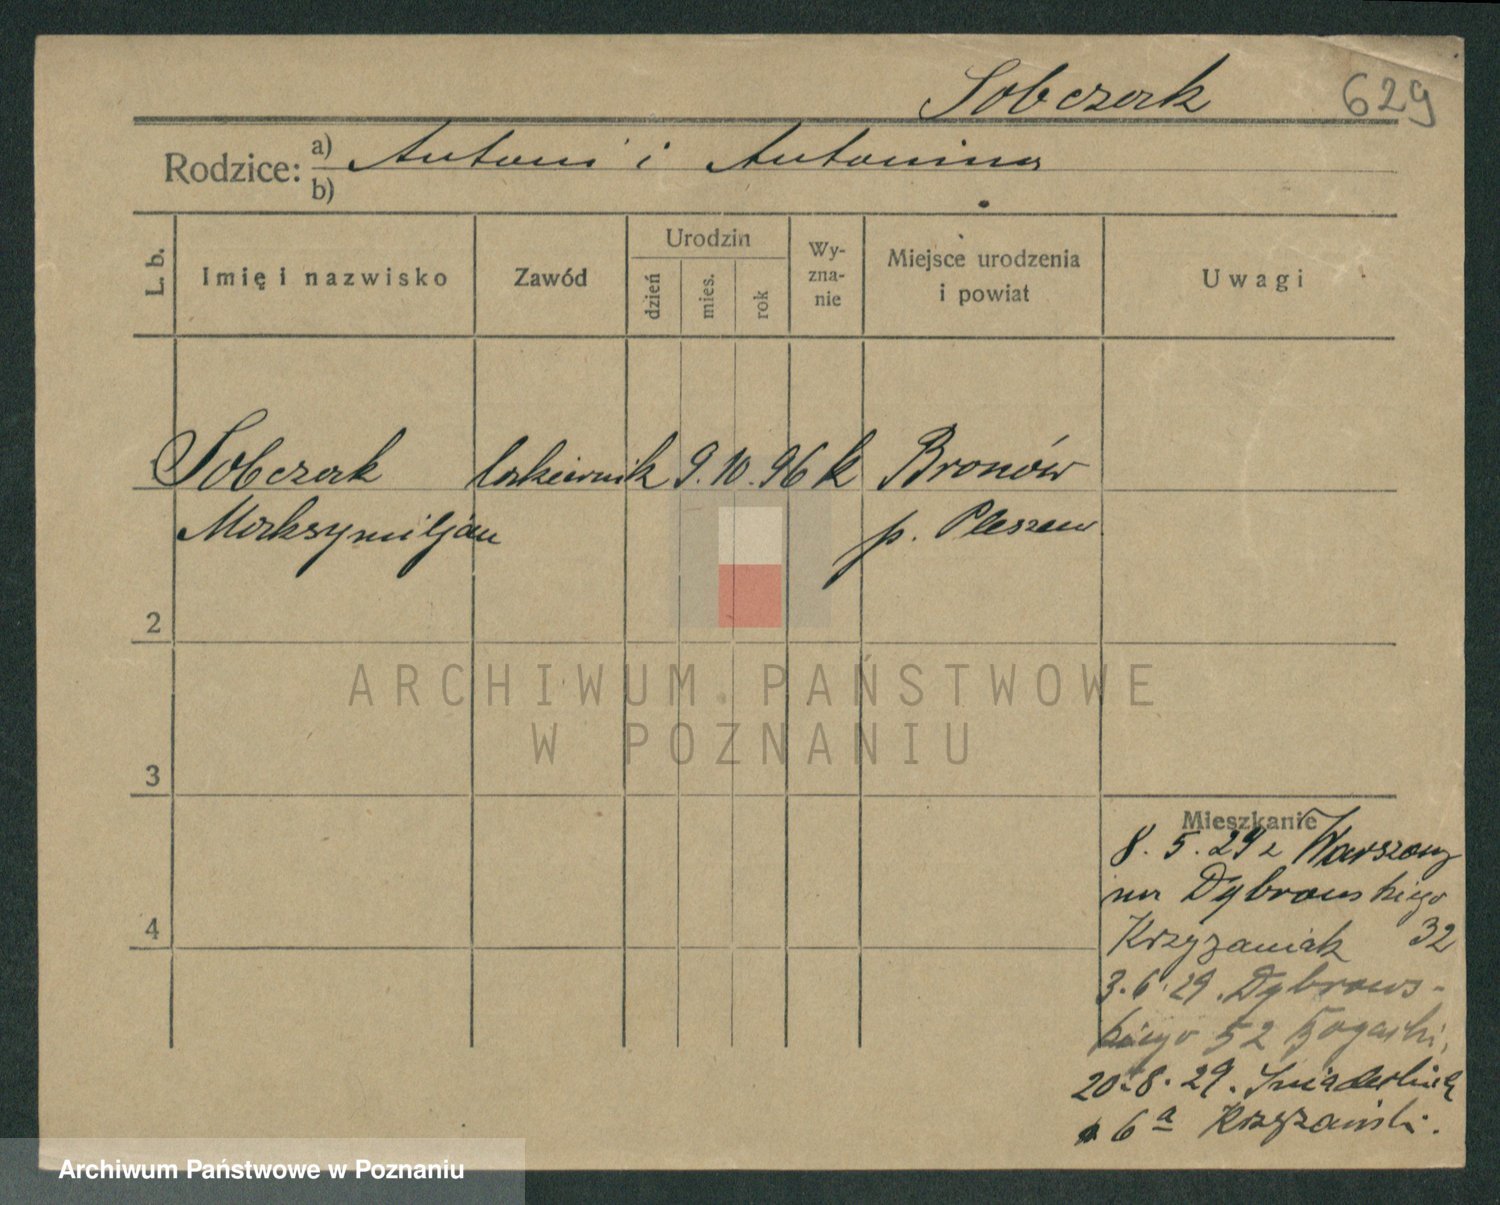 Sobczak 629
Rodzice: a) Antoni i Antonina
b)
L. b. Imię i nazwisko Zawód Urodzin dzień mies. rok Wy-zna-nie Miejsce urodzenia i powiat Uwagi
Sobczak cukiernik 9. 10. 96 k Bronów
Maksymiljan p. Pleszew
2
3
4
Mieszkanie
8. 5. 29 z Warszawy
na Dąbrowskiego
Krzyżaniak 32
3. 6. 29. Dąbrows-
kiego 52
20. 8. 29. Śniadeckich
6a Krzyżański.
ARCHIWUM PAŃSTWOWE
W POZNANIU
Archiwum Państwowe w Poznaniu